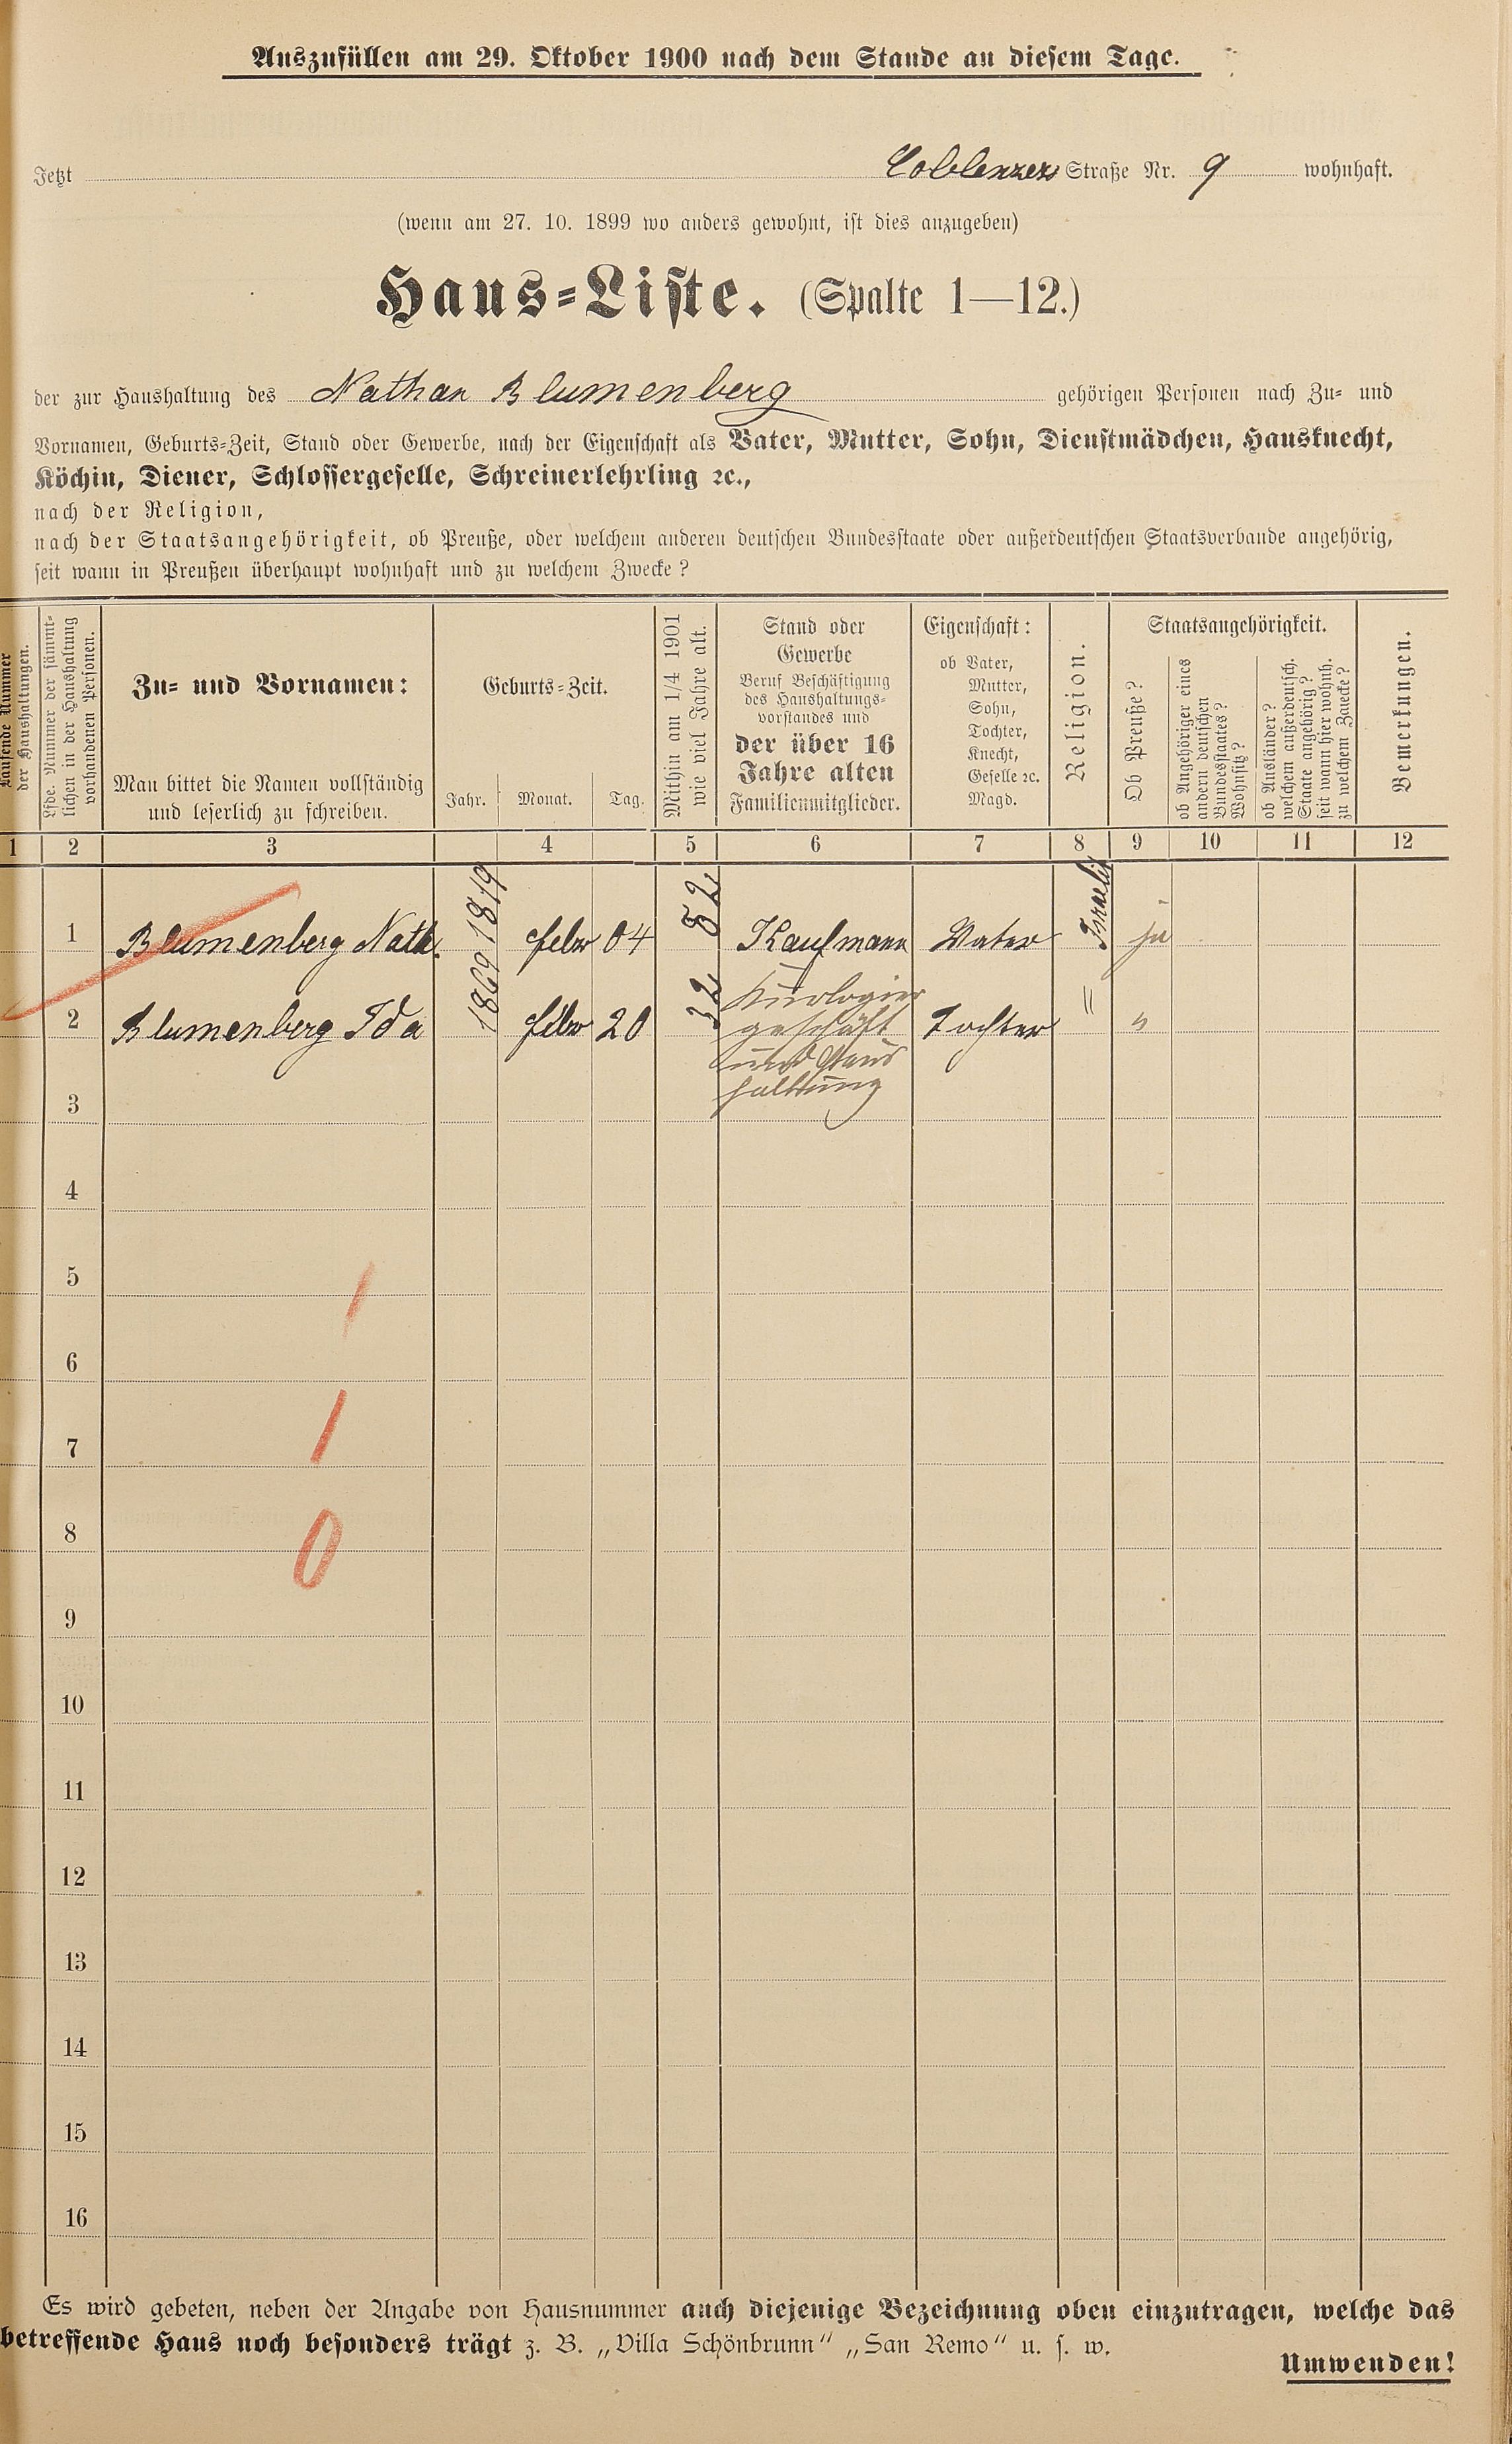 Auszufüllen am 29. Oktober 1900 nach dem Stande an diesem Tage.
Jetzt Coblenzer Straße Nr. 9 wohnhaft.
(wenn am 27. 10. 1899 wo anders gewohnt, ist dies anzugeben)
Haus-Liste. (Spalte 1—12.)
der zur Haushaltung des Nathan Blumenberg gehörigen Personen nach Zu- und
Vornamen, Geburts-Zeit, Stand oder Gewerbe, nach der Eigenschaft als Vater, Mutter, Sohn, Dienstmädchen, Hausknecht,
Köchin, Diener, Schlossergeselle, Schreinerlehrling ꝛc.,
nach der Religion,
nach der Staatsangehörigkeit, ob Preuße, oder welchem anderen deutschen Bundesstaate oder außerdeutschen Staatsverbande angehörig,
seit wann in Preußen überhaupt wohnhaft und zu welchem Zwecke?
Laufende Nummer
der Haushaltungen.
Lfde. Nummer der sämmt-
lichen in der Haushaltung
vorhandenen Personen.
Zu- und Vornamen:
Man bittet die Namen vollständig
und leserlich zu schreiben.
Geburts-Zeit.
Jahr. Monat. Tag.
Mithin am 1/4 1901
wie viel Jahre alt.
Stand oder
Gewerbe
Beruf Beschäftigung
des Haushaltungs-
vorstandes und
der über 16
Jahre alten
Familienmitglieder.
Eigenschaft:
ob Vater,
Mutter,
Sohn,
Tochter,
Knecht,
Geselle ꝛc.
Magd.
Religion.
Staatsangehörigkeit.
Ob Preuße?
ob Angehöriger eines
andern deutschen
Bundesstaates?
Wohnsitz?
ob Ausländer?
welchem außerdeutsch.
Staate angehörig?
seit wann hier wohnh.
zu welchem Zwecke?
Bemerkungen.
1 2 3 4 5 6 7 8 9 10 11 12
1 Blumenberg Nath. 1819 febr 04 82 Kaufmann Vater Israelit ja
2 Blumenberg Ida 1869 febr 20 32 geschäft Tochter " "
und Haus
haltung
3
4
5
6
7
8
9
10
11
12
13
14
15
16
1
1
0
Es wird gebeten, neben der Angabe von Hausnummer auch diejenige Bezeichnung oben einzutragen, welche das
betreffende Haus noch besonders trägt z. B. „Villa Schönbrunn" „San Remo" u. s. w.
Umwenden!